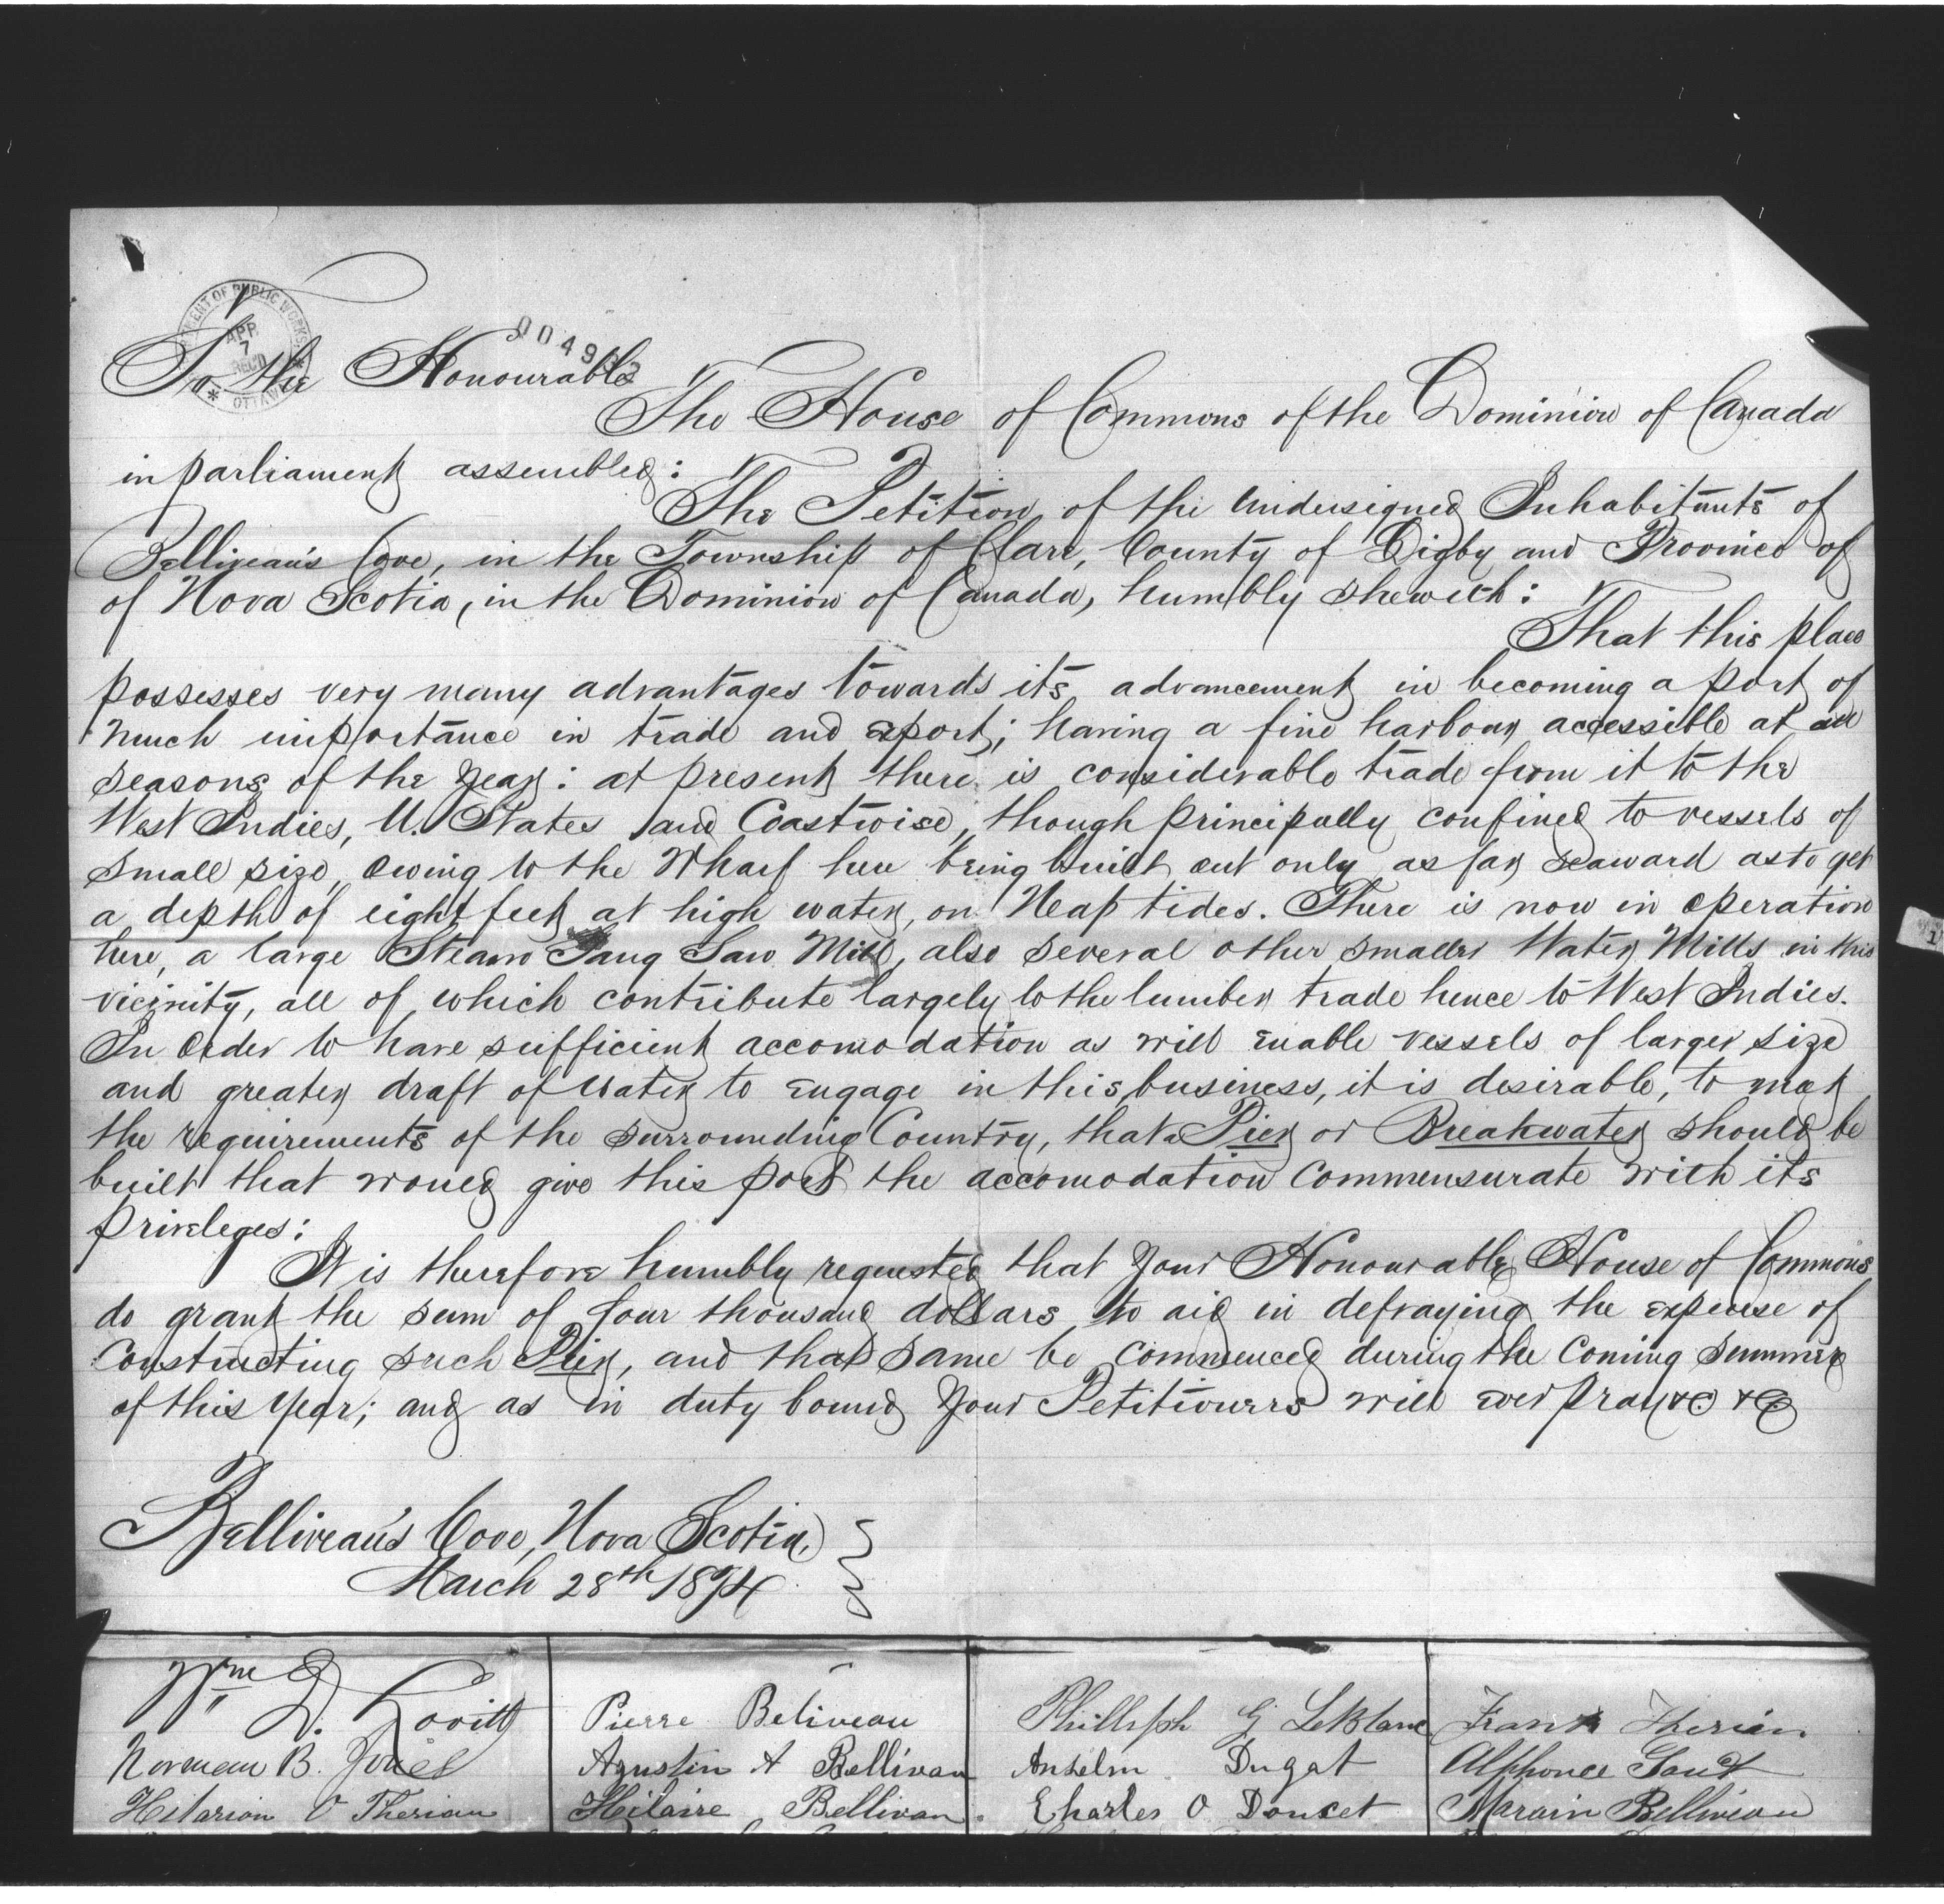 DEPARTMENT OF PUBLIC WORKS
APR
7
REC'D
* OTTAWA *
To the Honourable
The House of Commons of the Dominion of Canada
in parliament assembled:
The Petition of the Undersigned Inhabitants of
Belliveau's Cove, in the Township of Clare, County of Digby and Province of
of Nova Scotia, in the Dominion of Canada, humbly sheweth:
That this place
possesses very many advantages towards its advancement in becoming a port of
much importance in trade and export; having a fine harbour accessible at all
seasons of the year: at present there is considerable trade from it to the
West Indies, U. States and Coastwise, though principally confined to vessels of
small size, owing to the Wharf here being built out only as far seaward as to get
a depth of eight feet at high water, on Neap tides. There is now in operation
here, a large Steam Gang Saw Mill, also several other smaller Water Mills in this
vicinity, all of which contribute largely to the lumber trade hence to West Indies.
In Order to have sufficient accomodation as will enable vessels of larger size
and greater draft of Water to engage in this business, it is desirable, to meet
the requirements of the surrounding Country, that a Pier or Breakwater should be
built that would give this port the accomodation Commensurate with its
priveleges:
It is therefore humbly requested that Your Honourable House of Commons
do grant the sum of four thousand dollars to aid in defraying the expense of
Constructing such Pier, and that same be commenced during the Coming summer
of this year; and as in duty bound Your Petitioners will ever pray &c &c
Belliveau's Cove, Nova Scotia,
March 28th 1874
Wm D. Lovitt
Norman B. Jones
Hilarion O Therian
Pierre Beliveau
Agustin A Bellivau
Hilaire Bellivau.
Philliph G LeBlanc
Anselm Dugat
Charles O Doucet
Frank Therian
Alphonce
Marain Belliveau
1